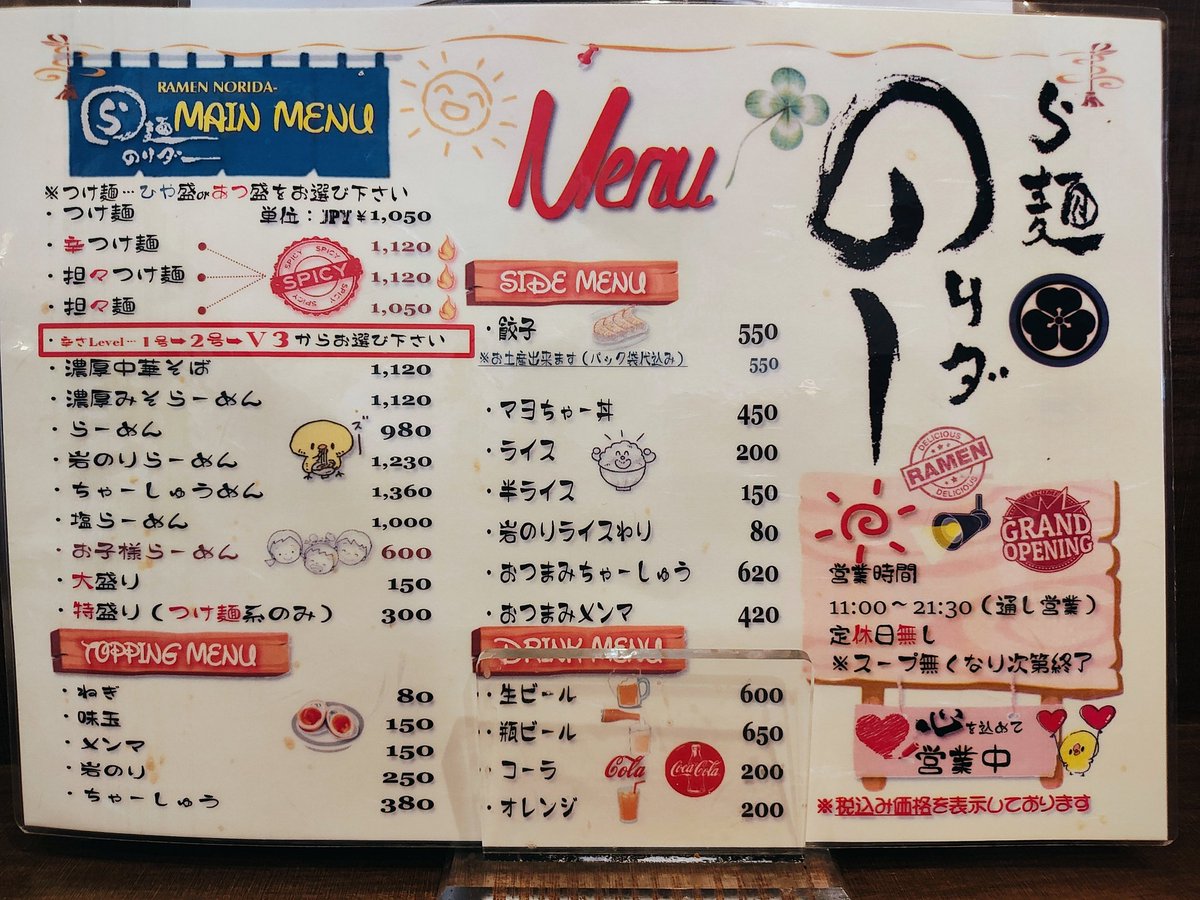 RAMEN NORIDA-
ら麺 のりダー
MAIN MENU
※つけ麺…ひや盛orあつ盛をお選び下さい
・つけ麺 単位：JPY ¥1,050
・辛つけ麺 1,120
・担々つけ麺 1,120
・担々麺 1,050
SPICY
SPICY
SPICY
・辛さLevel…1号➡2号➡V3からお選び下さい
・濃厚中華そば 1,120
・濃厚みそらーめん 1,120
・らーめん 980
ズー
・岩のりらーめん 1,230
・ちゃーしゅうめん 1,360
・塩らーめん 1,000
・お子様らーめん 600
・大盛り 150
・特盛り（つけ麺系のみ） 300
TOPPING MENU
・ねぎ 80
・味玉 150
・メンマ 150
・岩のり 250
・ちゃーしゅう 380
Menu
SIDE MENU
・餃子 550
※お土産出来ます（パック袋代込み） 550
・マヨちゃー丼 450
・ライス 200
・半ライス 150
・岩のりライスわり 80
・おつまみちゃーしゅう 620
・おつまみメンマ 420
DRINK MENU
・生ビール 600
・瓶ビール 650
・コーラ Cola Coca-Cola 200
・オレンジ 200
ら麺
のりダー
DELICIOUS
RAMEN
DELICIOUS
GRAND
OPENING
営業時間
11:00～21:30（通し営業）
定休日無し
※スープ無くなり次第終了
心を込めて
営業中
※税込み価格を表示しております